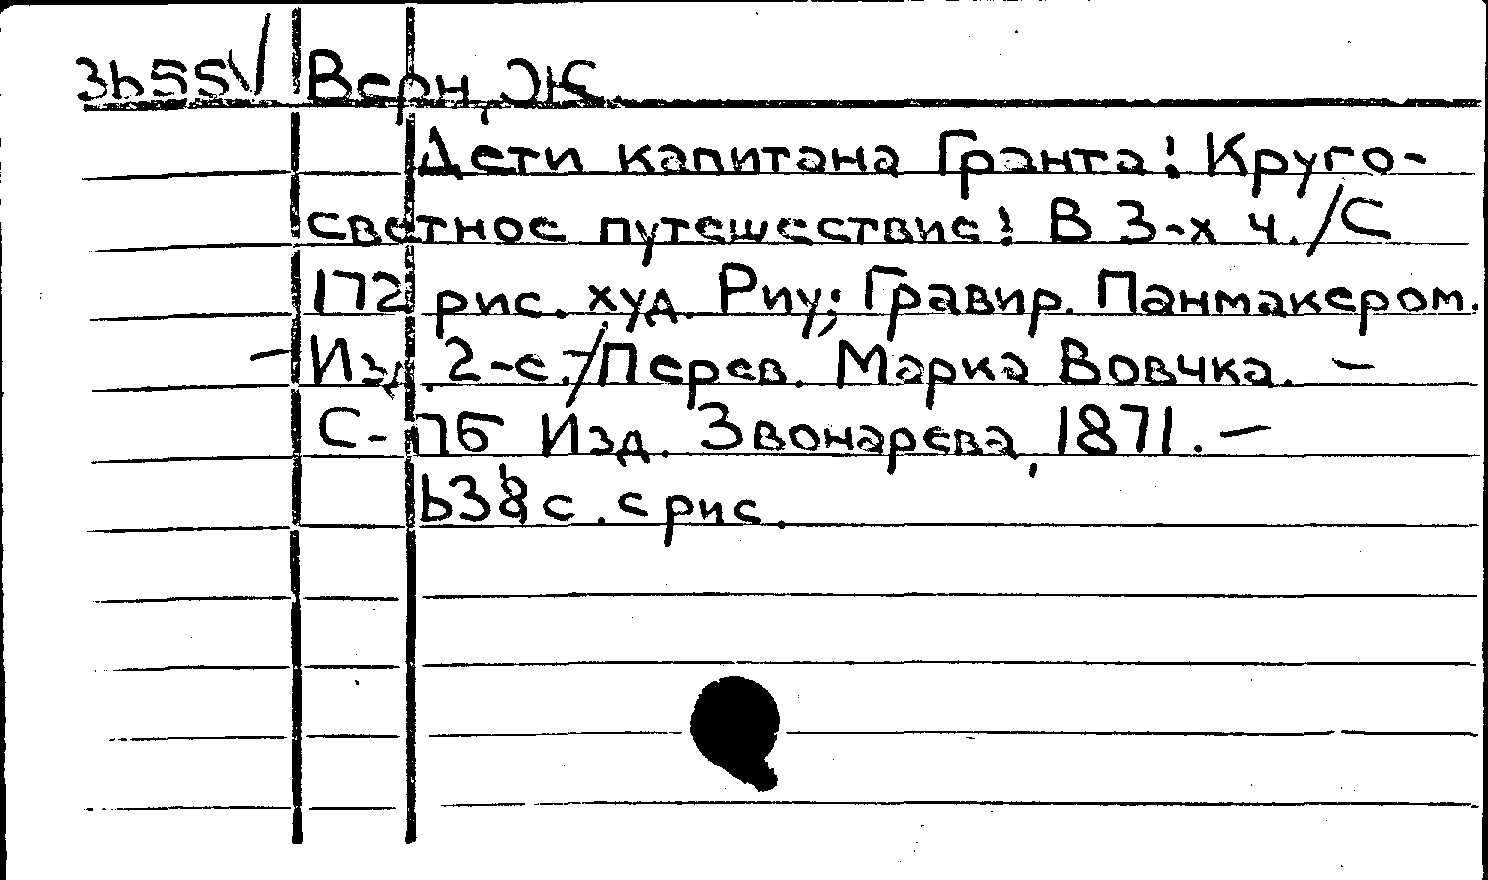 3655√ Верн, Ж.
Дети капитана Гранта! Круго-
светное путешествие! В 3-х ч./С
172 рис. худ. Риу; Гравир. Панмакером.
— Изд. 2-е.—/Перев. Марка Вовчка. —
С-Пб Изд. Звонарева, 1871. —
638 с. с рис.